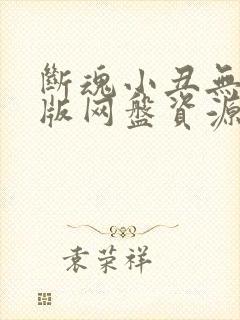 斷魂小丑無
版网盤資源
袁荣祥